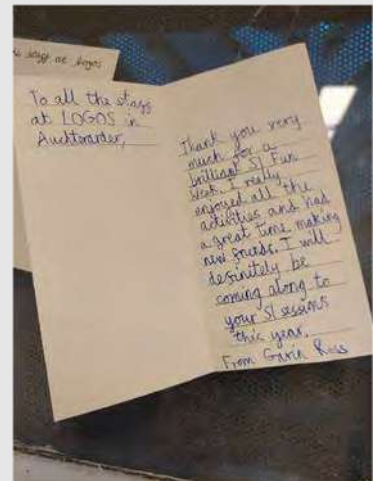 staff at Logos
To all the staff
at LOGOS in
Auchterarder,
Thank you very
much for a
brilliant S1 Fun
Week. I really
enjoyed all the
activities and had
a great time making
new friends. I will
definitely be
coming along to
your S1 sessions
this year.
From Gavin Ross